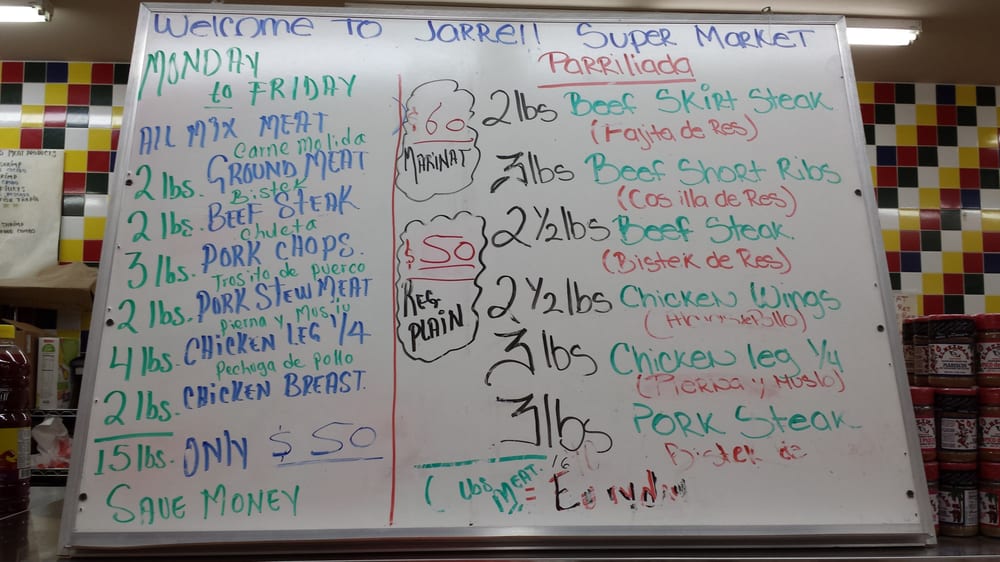 Welcome to Jarrell Super Market
MONDAY
to FRIDAY
ALL MIX MEAT
Carne Molida
2 lbs. GROUND MEAT
Bistek
2 lbs. BEEF STEAK
Chuleta
3 lbs. PORK CHOPS.
Trosito de puerco
2 lbs. PORK STEW MEAT
Pierna y Muslo
4 lbs. CHICKEN LEG 1/4
Pechuga de pollo
2 lbs. CHICKEN BREAST.
15 lbs. ONLY $50
SAVE MONEY
Parriliada
$60
MARINAT
$50
REG
PLAIN
2 lbs Beef Skirt Steak
(Fajita de Res)
3 lbs Beef Short Ribs
(Cosilla de Res)
2 1/2 lbs Beef Steak
(Bistek de Res)
2 1/2 lbs Chicken Wings
3 lbs Chicken leg 1/4
(Pierna y Muslo)
3 lbs Pork Steak
Bistek de
16
( lbs MEAT. =